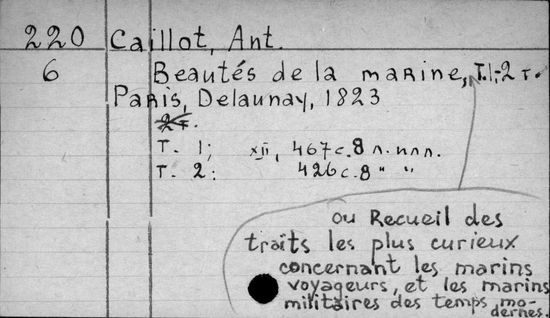 220 Caillot, Ant.
6 Beautés de la marine, T.1-2 т.
Paris, Delaunay, 1823
2 т.
T. 1; XII, 467 с. 8 л. илл.
T. 2: 426 с. 8 " "
ou Recueil des
traits les plus curieux
concernant les marins
voyageurs, et les marins
militaires des temps mo-
dernes.